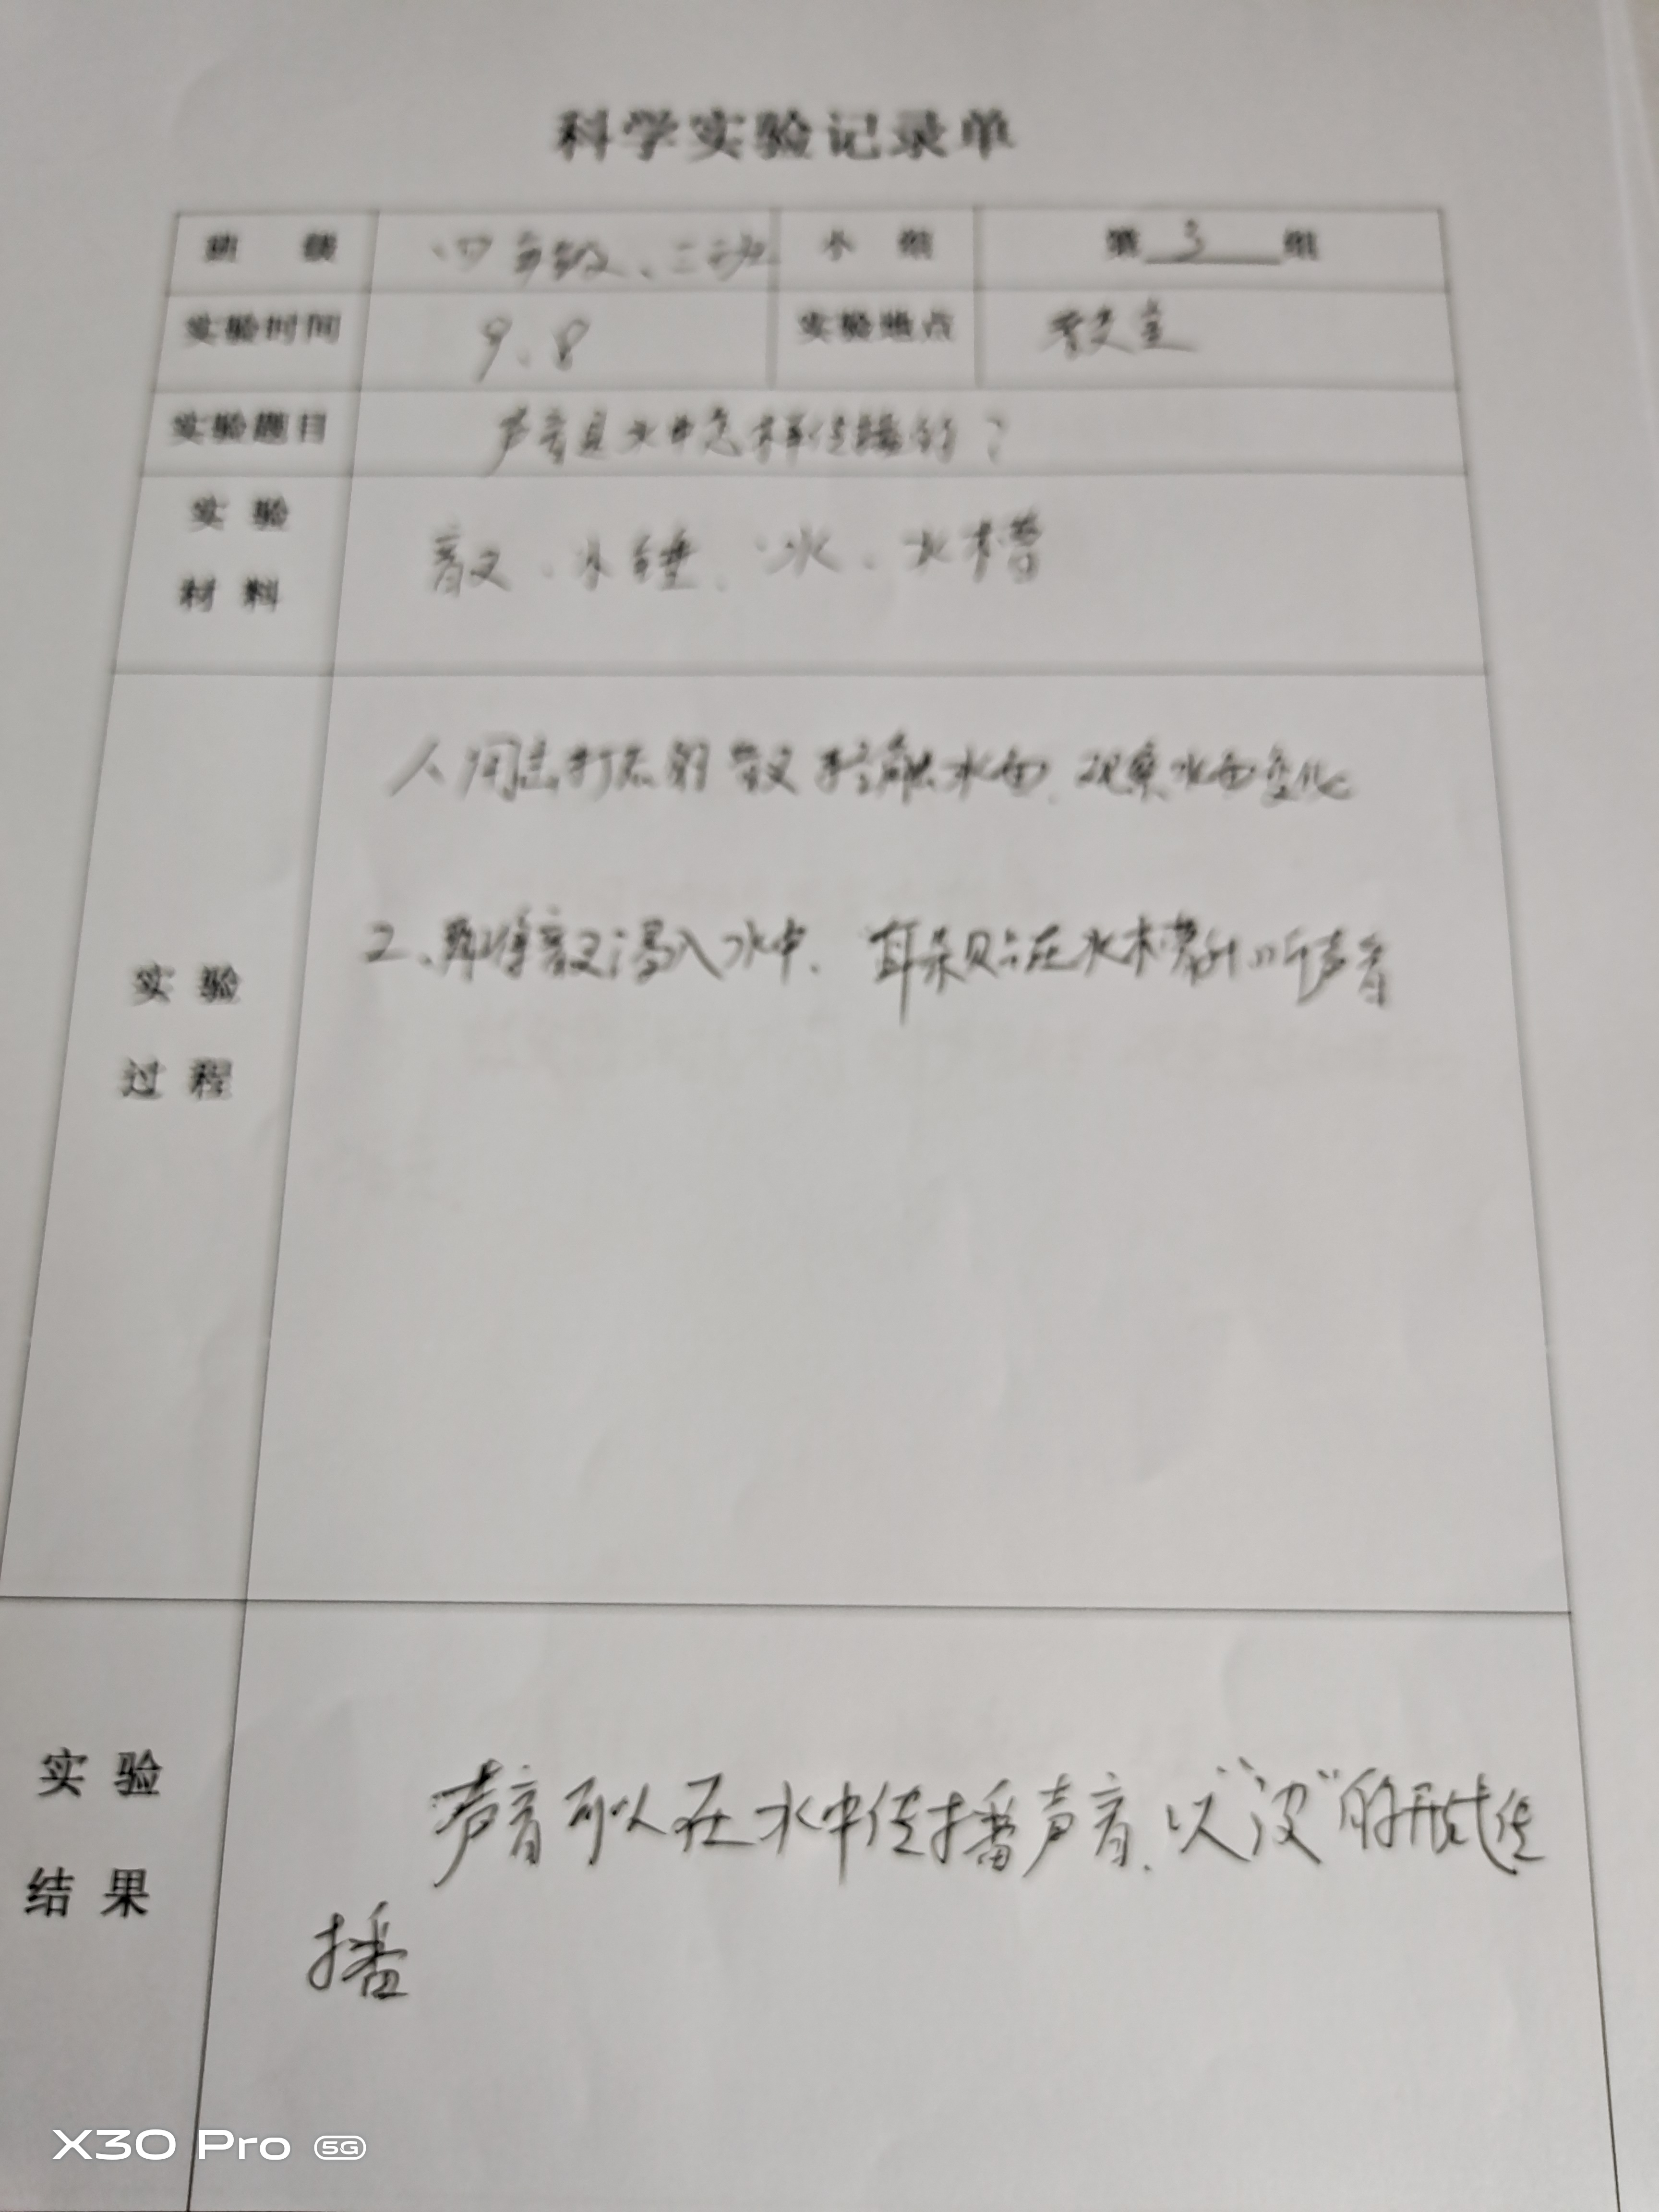 科学实验记录单
班 级 四年级、二班 小 组 第 3 组
实验时间 9.8 实验地点 教室
实验题目 声音是水中怎样传播的?
实 验
材 料
音叉、木锤、水、水槽
1、用击打后的音叉轻触水面、观察水面变化
2、将音叉浸入水中、耳朵贴在水槽外听声音
实 验
过 程
实 验
结 果
声音可以在水中传播声音、以“波”的形式传
播
X30 Pro 5G